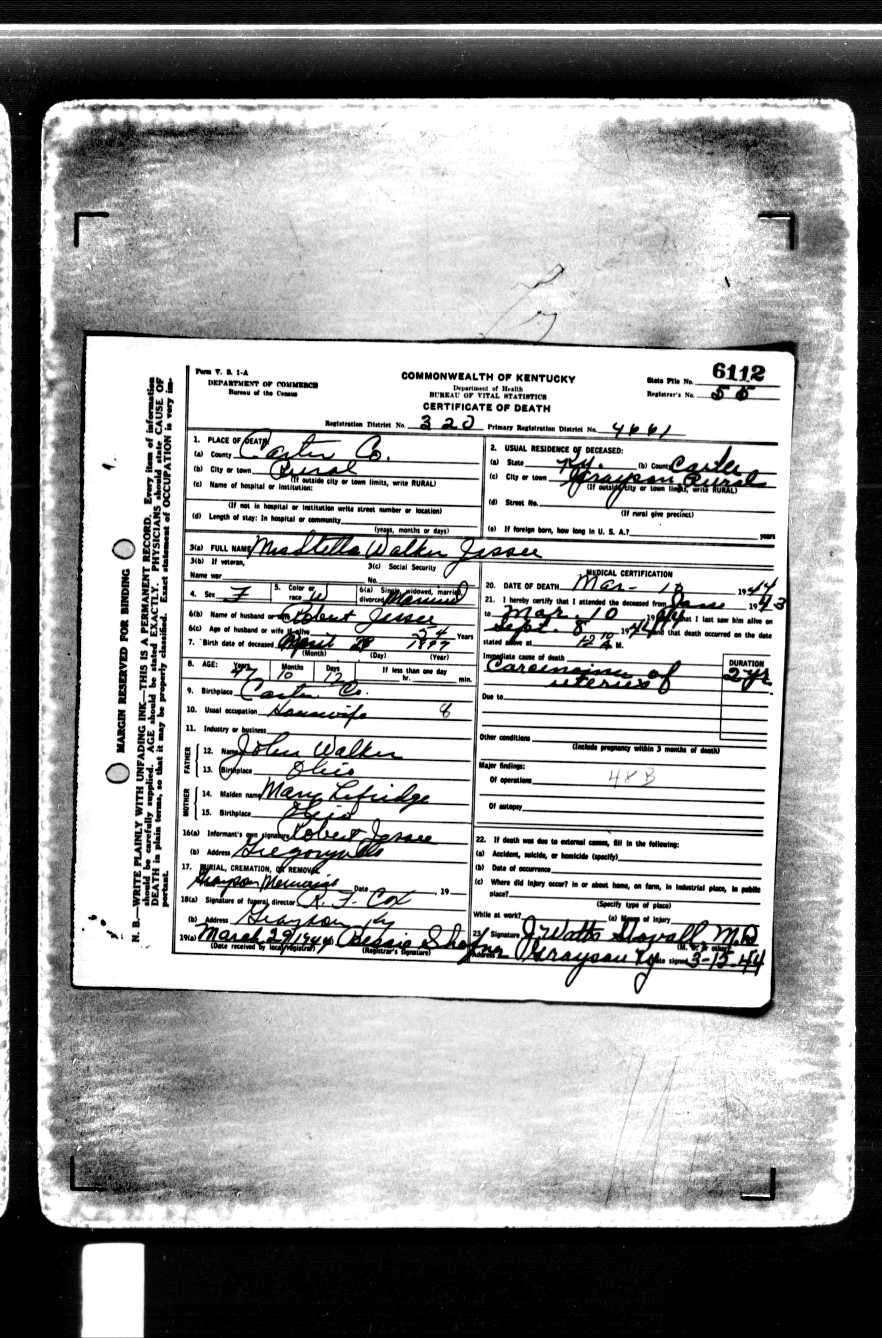 Form V. S. 1-A
DEPARTMENT OF COMMERCE
Bureau of the Census
COMMONWEALTH OF KENTUCKY
Department of Health
BUREAU OF VITAL STATISTICS
CERTIFICATE OF DEATH
State File No. 6112
Registrar's No. 55
Registration District No. 320 Primary Registration District No. 4661
1. PLACE OF DEATH:
(a) County Carter Co.
(b) City or town Rural
(If outside city or town limits, write RURAL)
(c) Name of hospital or institution:
(If not in hospital or institution write street number or location)
(d) Length of stay: In hospital or community
(years, months or days)
2. USUAL RESIDENCE OF DECEASED:
(a) State Ky. (b) County Carter
(c) City or town Grayson Rural
(If outside city or town limits, write RURAL)
(d) Street No.
(If rural give precinct)
(e) If foreign born, how long in U. S. A.? years
3(a) FULL NAME Mrs Stella Walker Jesse
3(b) If veteran,
Name war
3(c) Social Security
No.
4. Sex F 5. Color or race W 6(a) Single, widowed, married, divorced Married
6(b) Name of husband or wife Robert Jesse
6(c) Age of husband or wife if alive 54 Years
7. Birth date of deceased April 28 1897
(Month) (Day) (Year)
8. AGE: Years 47 Months 10 Days 12 If less than one day hr. min.
9. Birthplace Carter Co.
10. Usual occupation Housewife 8
11. Industry or business
FATHER
12. Name John Walker
13. Birthplace Ohio
MOTHER
14. Maiden name Mary
15. Birthplace Ohio
16(a) Informant's own signature Robert Jesse
(b) Address Gregoryville
17. BURIAL, CREMATION, OR REMOVAL
Grayson Date , 19
18(a) Signature of funeral director R. F. Cox
(b) Address Grayson Ky
19(a) March 29 1944 Bessie
(Date received by local registrar) (Registrar's signature)
MEDICAL CERTIFICATION
20. DATE OF DEATH Mar - 10 1944
21. I hereby certify that I attended the deceased from 1943
to Mar. 10 1944 that I last saw him alive on
Sept. 8 1944 and that death occurred on the date
stated above at 12 10 A M.
Immediate cause of death
Carcinoma of
uterus
DURATION
2 yr
Due to
Other conditions
(Include pregnancy within 3 months of death)
Major findings:
Of operations 48B
Of autopsy
22. If death was due to external causes, fill in the following:
(a) Accident, suicide, or homicide (specify)
(b) Date of occurrence
(c) Where did injury occur? in or about home, on farm, in industrial place, in public
place?
(Specify type of place)
While at work? (e) Means of injury
23. Signature J. Watts Stovall M.D
(M. D. or other)
Address Grayson Ky Date signed 3-15-44
MARGIN RESERVED FOR BINDING
N. B.—WRITE PLAINLY WITH UNFADING INK—THIS IS A PERMANENT RECORD. Every item of information
should be carefully supplied. AGE should be stated EXACTLY. PHYSICIANS should state CAUSE OF
DEATH in plain terms, so that it may be properly classified. Exact statement of OCCUPATION is very im-
portant.